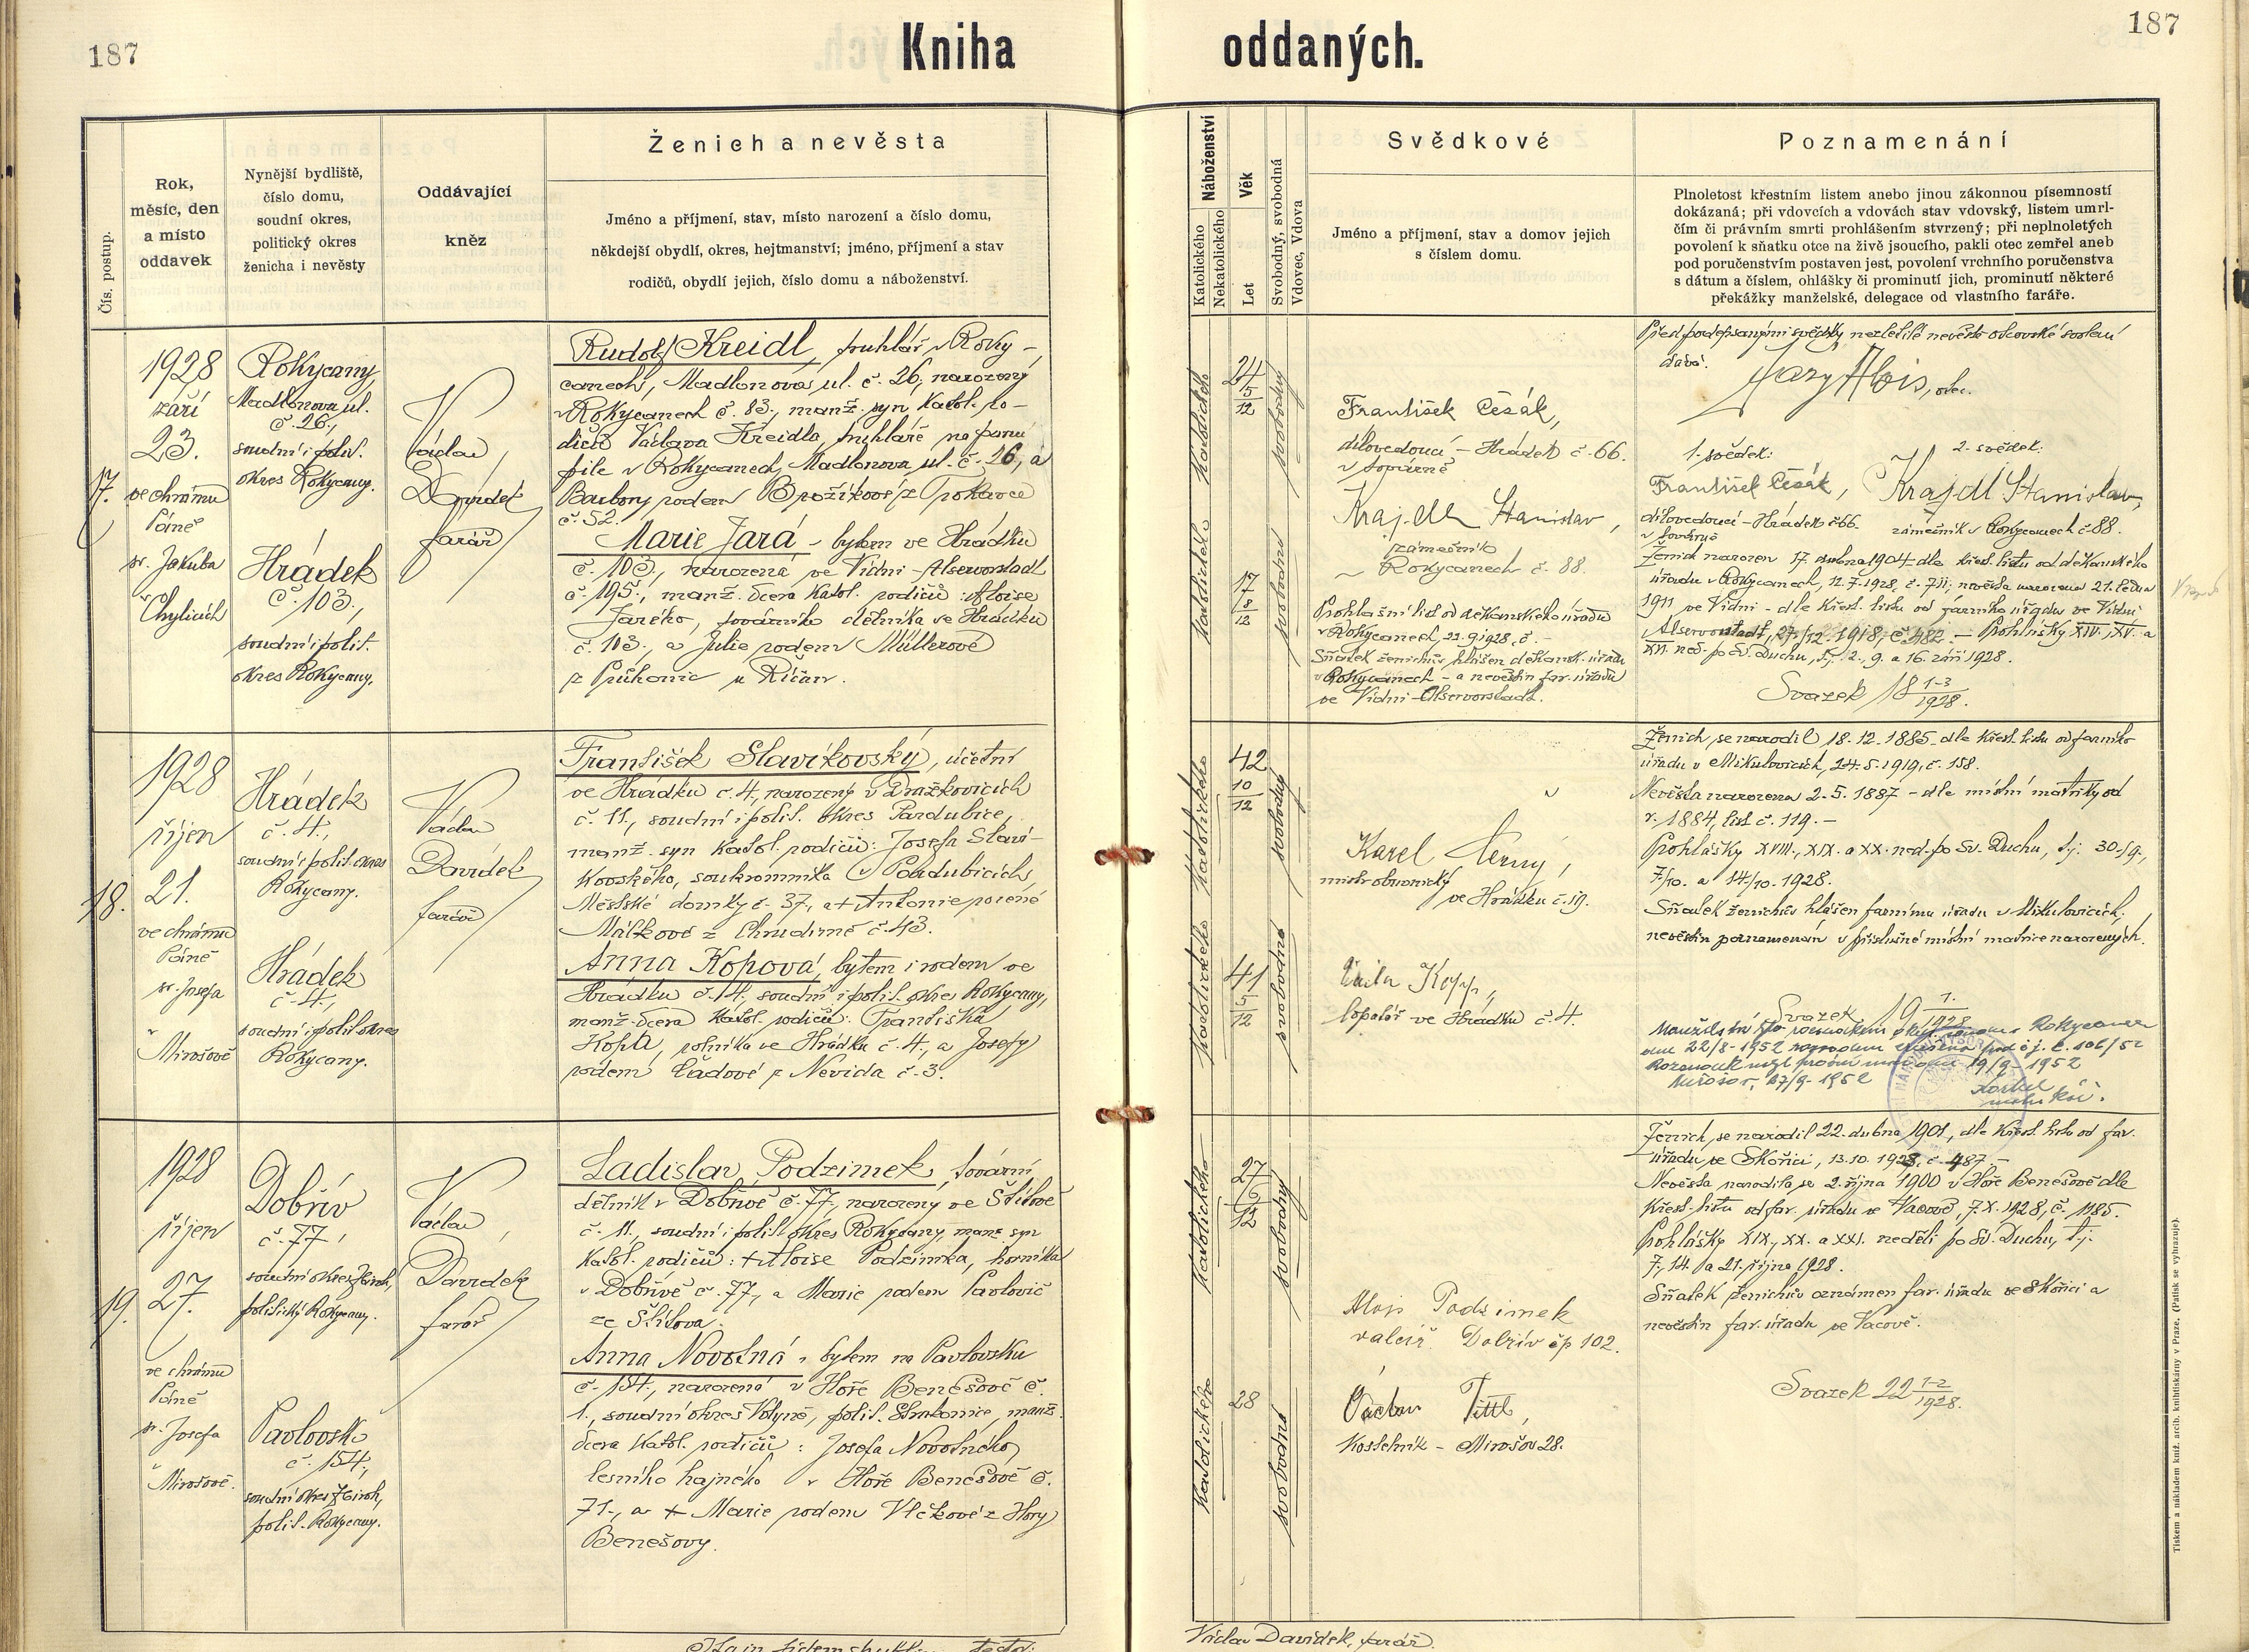 187
Kniha
oddaných.
187
Čís. postup.
Rok,
měsíc, den
a místo
oddavek
Nynější bydliště,
číslo domu,
soudní okres,
politický okres
ženicha i nevěsty
Oddávající
kněz
Ženich a nevěsta
Jméno a příjmení, stav, místo narození a číslo domu,
někdejší obydlí, okres, hejtmanství; jméno, příjmení a stav
rodičů, obydlí jejich, číslo domu a náboženství.
Náboženství
Katolického
Nekatolického
Věk
Let
Svobodný, svobodná
Vdovec, Vdova
Svědkové
Jméno a příjmení, stav a domov jejich
s číslem domu.
Poznamenání
Plnoletost křestním listem anebo jinou zákonnou písemností
dokázaná; při vdovcích a vdovách stav vdovský, listem umrl-
čím či právním smrti prohlášením stvrzený; při neplnoletých
povolení k sňatku otce na živě jsoucího, pakli otec zemřel aneb
pod poručenstvím postaven jest, povolení vrchního poručenstva
s dátum a číslem, ohlášky či prominutí jich, prominutí některé
překážky manželské, delegace od vlastního faráře.
17.
1928
září
23.
ve chrámu
Páně
sv. Jakuba
v
Chylicích
Rokycany,
Madlonova ul.
č. 26.,
soudní i polit.
okres Rokycany.
Hrádek
č. 103.,
soudní i polit.
okres Rokycany.
Václav
Davídek
farář
Rudolf Kreidl, truhlář v Roky-
canech, Madlonova ul. č. 26, narozený
v Rokycanech č. 83., manž. syn katol. ro-
dičů Václava Kreidla, truhláře na parní
pile v Rokycanech, Madlonova ul. č. 26, a
Barbory rodem Brožíkové z Trokavce
č. 52.
Marie Jará - bytem ve Hrádku
č. 103., narozená ve Vídni - Alservorstadt
č. 195., manž. dcera katol. rodičů: Aloise
Jarého, továrního dělníka ve Hrádku
č. 103., a Julie rodem Müllerové
z Průhonic u Říčan.
katolického
24
5
12
svobodný
katolického
17
8
12
svobodná
František Cěsák,
dílovedoucí - Hrádek č. 66.
v továrně
Krajdl Stanislav,
zámečník
v Rokycanech č. 88.
Prohlašní list od děkanského úřadu
v Rokycanech, 22. 9. 1928, č. -
Sňatek ženichův hlášen děkansk. úřadu
v Rokycanech - a nevěstin far. úřadu
ve Vídni - Alservorstadt.
Před podepsanými svědky nezletilé nevěstě otcovské svolení
dává:
Jarý Alois, otec.
1. svědek:
2. svědek:
František Cěsák,
Krajdl Stanislav,
dílovedoucí - Hrádek č. 66.
v továrně
zámečník v Rokycanech č. 88.
Ženich narozen 17. dubna 1904 dle křest. listu od děkanského
úřadu v Rokycanech, 12. 7. 1928, č. 711; nevěsta narozena 21. ledna
1911 ve Vídni - dle křest. listu od farního úřadu ve Vídni
Alservorstadt, 27./12. 1918, č. 482. - Prohlášky XIV., XV. a
XVI. ned. po sv. Duchu, tj. 2., 9. a 16. září 1928.
Svazek 18 1-3
1928.
18.
1928
říjen
21.
ve chrámu
Páně
sv. Josefa
v
Mirošově
Hrádek
č. 4.,
soudní i polit. okres
Rokycany.
Hrádek
č. 4.,
soudní i polit. okres
Rokycany.
Václav
Davídek
farář
František Slavíkovský, účetní
ve Hrádku č. 4., narozený v Dražkovicích
č. 11., soudní i polit. okres Pardubice,
manž. syn katol. rodičů: Josefa Slaví-
kovského, soukromníka v Pardubicích,
Městské domky č. 37., a + Antonie rozené
Málkové z Chrudimě č. 43.
Anna Kopová, bytem i rodem ve
Hrádku č. 14., soudní i polit. okres Rokycany,
manž. dcera katol. rodičů: Františka
Kopa, rolníka ve Hrádku č. 4., a Josefy
rodem Čadové z Nevida č. 3.
katolického
42
10
12
svobodný
katolického
41
5
12
svobodná
Karel Černý,
mistr obuvnický
ve Hrádku č. 19.
Kopp,
ve Hrádku č. 4.
Ženich se narodil 18. 12. 1885 dle křest. listu od farního
úřadu v Mikulovicích, 24. 5. 1919, č. 158.
Nevěsta narozena 2. 5. 1887 - dle místní matriky od
r. 1884, list č. 119. -
Prohlášky XVIII., XIX. a XX. ned. po Sv. Duchu, tj. 30./9.,
7./10. a 14./10. 1928.
Sňatek ženichův hlášen farnímu úřadu v Mikulovicích,
nevěstin poznamenán v příslušné místní matrice narozených.
Svazek 19 1.
1928
Manželství rozsudkem Rokycanech
dne 22/8 - 1952 č. j. C. 106/52
Rozsudek nabyl právní moci 19/9 - 1952
Mirošov, 27/9 - 1952
19.
1928
říjen
27.
ve chrámu
Páně
sv. Josefa
v
Mirošově.
Dobřív
č. 77,
soudní okres Zbiroh,
politický Rokycany.
Pavlovsko
č. 154.,
soudní okres Zbiroh,
polit. Rokycany.
Václav
Davídek
farář
Ladislav Podzimek, tovární
dělník v Dobřívě č. 77, narozený ve Štítově
č. 11., soudní i polit. okres Rokycany, manž. syn
katol. rodičů: + Aloise Podzimka, horníka
v Dobřívě č. 77., a Marie rodem Pavlovič
ze Štítova.
Anna Novotná, bytem na Pavlovsku
č. 154., narozená v Hoře Benešově č.
1., soudní okres Volyně, polit. Strakonice, manž.
dcera katol. rodičů: Josefa Novotného,
lesního hajného v Hoře Benešově č.
71., a + Marie rodem Vlčkové z Hory
Benešovy.
katolického
27
6
12
svobodný
katolického
28
svobodná
Alois Podzimek
valcíř Dobřív čp 102.
Václav Tittl,
Kostelník - Mirošov 28.
Ženich se narodil 22. dubna 1901, dle křest. listu od far.
úřadu ve Skořici, 13. 10. 1928, č. 487. -
Nevěsta narodila se 2. října 1900 v Hoře Benešově dle
křest. listu od far. úřadu ve Vacově, 7. X. 1928, č. 1185.
Prohlášky XIX., XX. a XXI. neděli po Sv. Duchu, tj.
7., 14. a 21. října 1928.
Sňatek ženichův oznámen far. úřadu ve Skořici a
nevěstin far. úřadu ve Vacově.
Svazek 22 1-2
1928.
Václav Davídek, farář.
Tiskem a nákladem kníž. arcib. knihtiskárny v Praze. (Patisk se vyhrazuje).